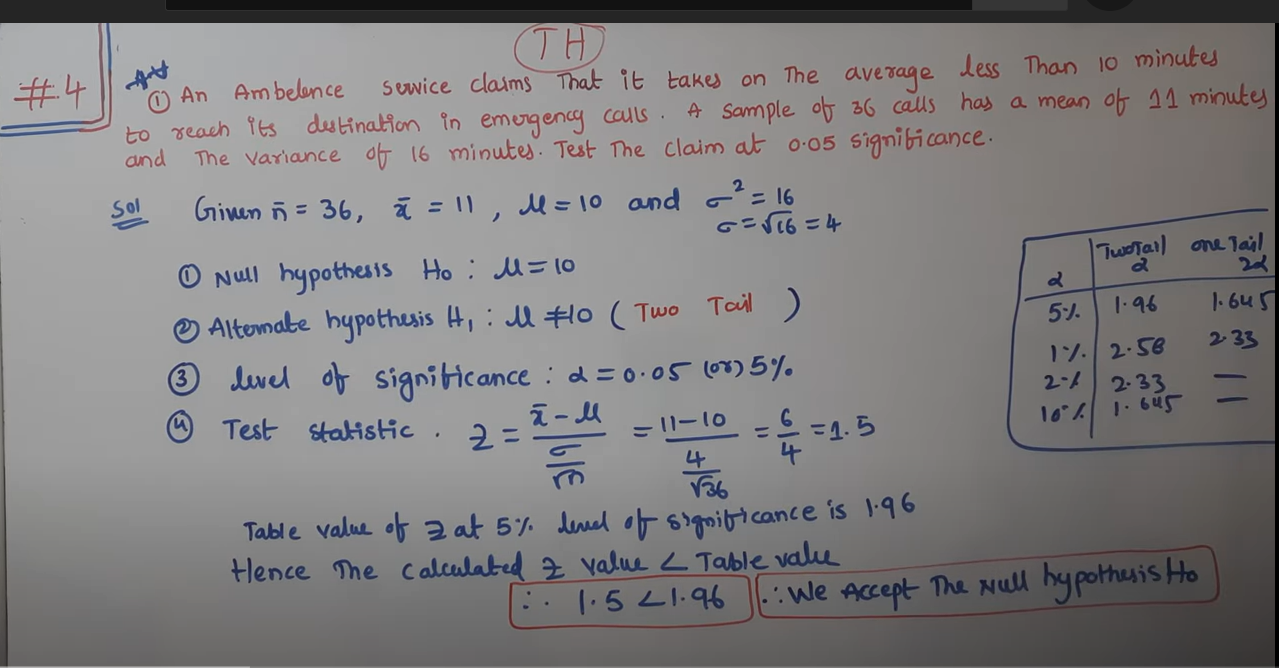 TH
#4
Ast
① An Ambelence service claims That it takes on The average less Than 10 minutes
to reach its destination in emergency calls. A sample of 36 calls has a mean of 11 minutes
and The variance of 16 minutes. Test The claim at 0.05 significance.
Sol Given n̄ = 36, x̄ = 11, μ = 10 and σ² = 16
σ = √16 = 4
① Null hypothesis H₀ : μ = 10
② Alternate hypothesis H₁ : μ ≠ 10 (Two Tail)
③ level of significance : α = 0.05 (or) 5%
④ Test statistic. Z = (x̄ - μ) / (σ/√n) = (11-10) / (4/√36) = 6/4 = 1.5
Table value of Z at 5% level of significance is 1.96
Hence The calculated Z value < Table value
∴ 1.5 < 1.96 ∴ We Accept The Null hypothesis H₀
α Two Tail α one Tail 2α
5% 1.96 1.645
1% 2.58 2.33
2% 2.33 —
10% 1.645 —